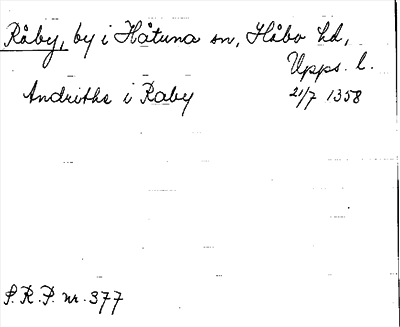 Råby, by i Håtuna sn, Håbo hd,
Upps. l.
Andriths i Raby 21/7 1358
S.R.P. nr. 377